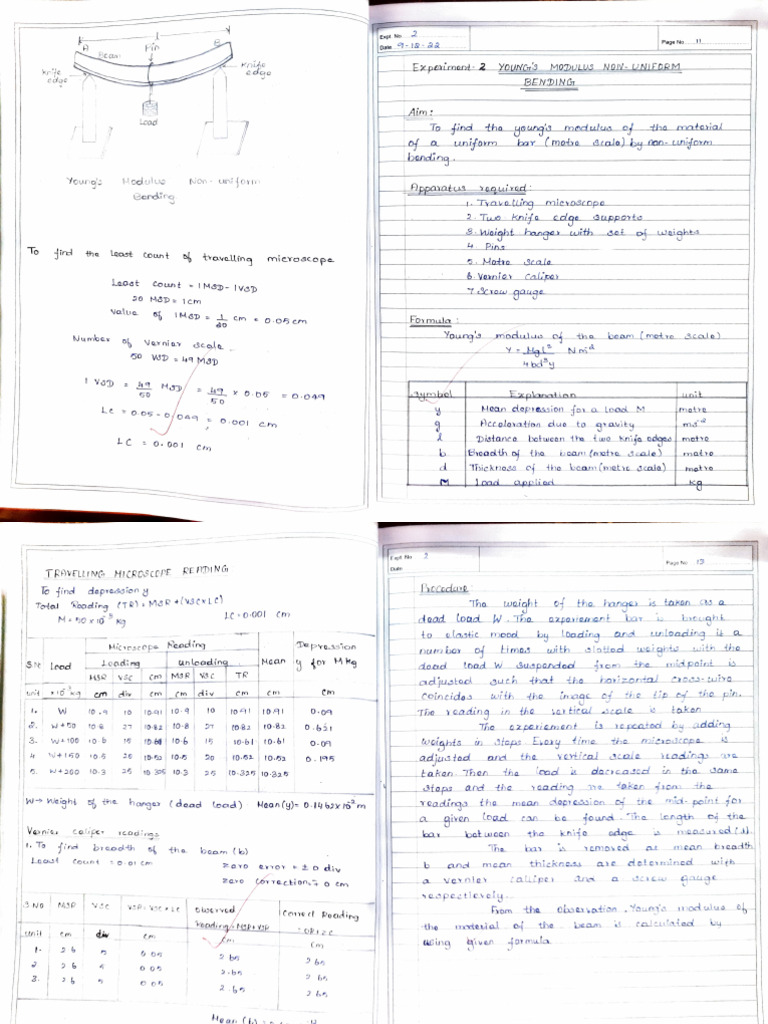 l
A
Beam
Pin
B
Knife edge
Knife edge
Load
Young's Modulus Non-uniform
Bending
To find the least count of travelling microscope
Least count = 1MSD-1VSD
20 MSD = 1cm
Value of 1MSD = 1/20 cm = 0.05cm
Number of Vernier scale
50 VSD = 49 MSD
1 VSD = 49/50 MSD = 49/50 x 0.05 = 0.049
LC = 0.05-0.049 = 0.001 cm
LC = 0.001 cm
Expt. No. 2
Date 9-12-22
Page No. 11
Experiment-2 YOUNG'S MODULUS NON-UNIFORM
BENDING
Aim:
To find the young's modulus of the material
of a uniform bar (metre scale) by non-uniform
bending.
Apparatus required:
1. Travelling microscope
2. Two knife edge supports
3. Weight hanger with set of weights
4. Pins
5. Metre scale
6. Vernier caliper
7. Screw gauge
Formula:
Young's modulus of the beam (metre scale)
Y = Mgl³/4bd³y Nm⁻²
Symbol Explanation unit
y Mean depression for a load M metre
g Acceleration due to gravity ms⁻²
l Distance between the two knife edges metre
b Breadth of the beam (metre scale) metre
d Thickness of the beam (metre scale) metre
M Load applied kg
TRAVELLING MICROSCOPE READING
To find depression y
Total Reading (TR) = MSR + (VSC x LC)
M = 50 x 10⁻³ kg LC = 0.001 cm
S.No Load Microscope Reading Mean Depression y for M kg
Loading unloading
MSR VSC cm MSR VSC TR
unit x10⁻³kg cm div cm cm div cm cm cm
1. W 10.9 10 10.91 10.9 10 10.91 10.91 0.09
2. W+50 10.8 27 10.82 10.8 27 10.82 10.82
3. W+100 10.6 15 10.6 15 10.61 10.61 0.09
4 W+150 10.5 20 10.52 10.5 20 10.52 10.52 0.195
5. W+200 10.3 25 10.325 10.3 25 10.325 10.325
W → Weight of the hanger (dead load) Mean(y) = 0.1462x10⁻²m
Vernier caliper readings
1. To find breadth of the beam (b)
Least count = 0.01 cm
zero error = ±0 div
zero correction = 0 cm
S.NO MSR VSC VSR = VSC x LC Observed Reading = MSR+VSR Correct Reading = OR±ZC
unit cm div cm cm cm
1. 2.6 5 0.05 2.65 2.65
2 2.6 5 0.05 2.65 2.65
3. 2.6 5 0.05 2.65 2.65
Mean (b) =
Expt. No. 2
Date
Page No. 13
Procedure
The weight of the hanger is taken as a
dead load W. The experiement bar is brought
to elastic mood by loading and unloading it a
number of times with slotted weights with the
dead load W suspended from the midpoint is
adjusted such that the horizontal cross-wire
coincides with the image of the tip of the pin.
The reading in the vertical scale is taken
The experiement is repeated by adding
weights in steps Every time the microscope is
adjusted and the vertical scale readings are
taken. Then the load is decreased in the same
steps and the reading are taken from the
readings the mean depression of the mid-point for
a given load can be found. The length of the
bar between the knife edge is measured (l).
The bar is removed as mean breadth
b and mean thickness are determined with
a vernier calliper and a screw gauge
respectively.
From the observation. Young's modulus of
the material of the beam is calculated by
using given formula